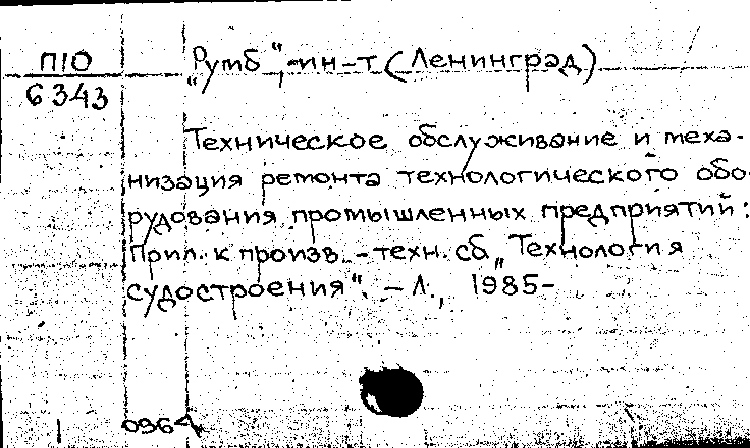 П10 „Румб“, ин-т (Ленинград)
6343
Техническое обслуживание и меха-
низация ремонта технологического обо-
рудования промышленных предприятий:
Прил. к произв.-техн. сб. „Технология
судостроения“. – Л., 1985–